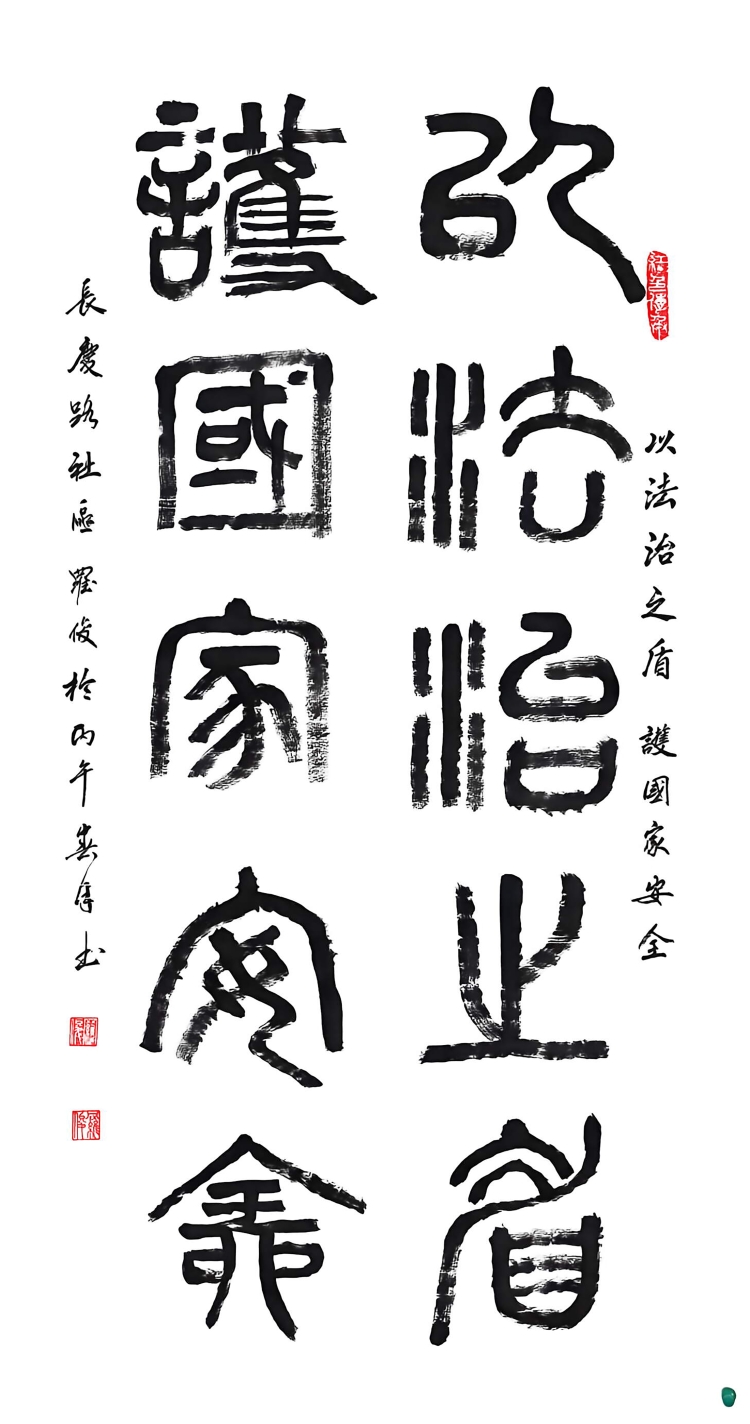 以法治之盾
護國家安全
以法治之盾 護國家安全
長慶路社區 羅俊於丙午春月書